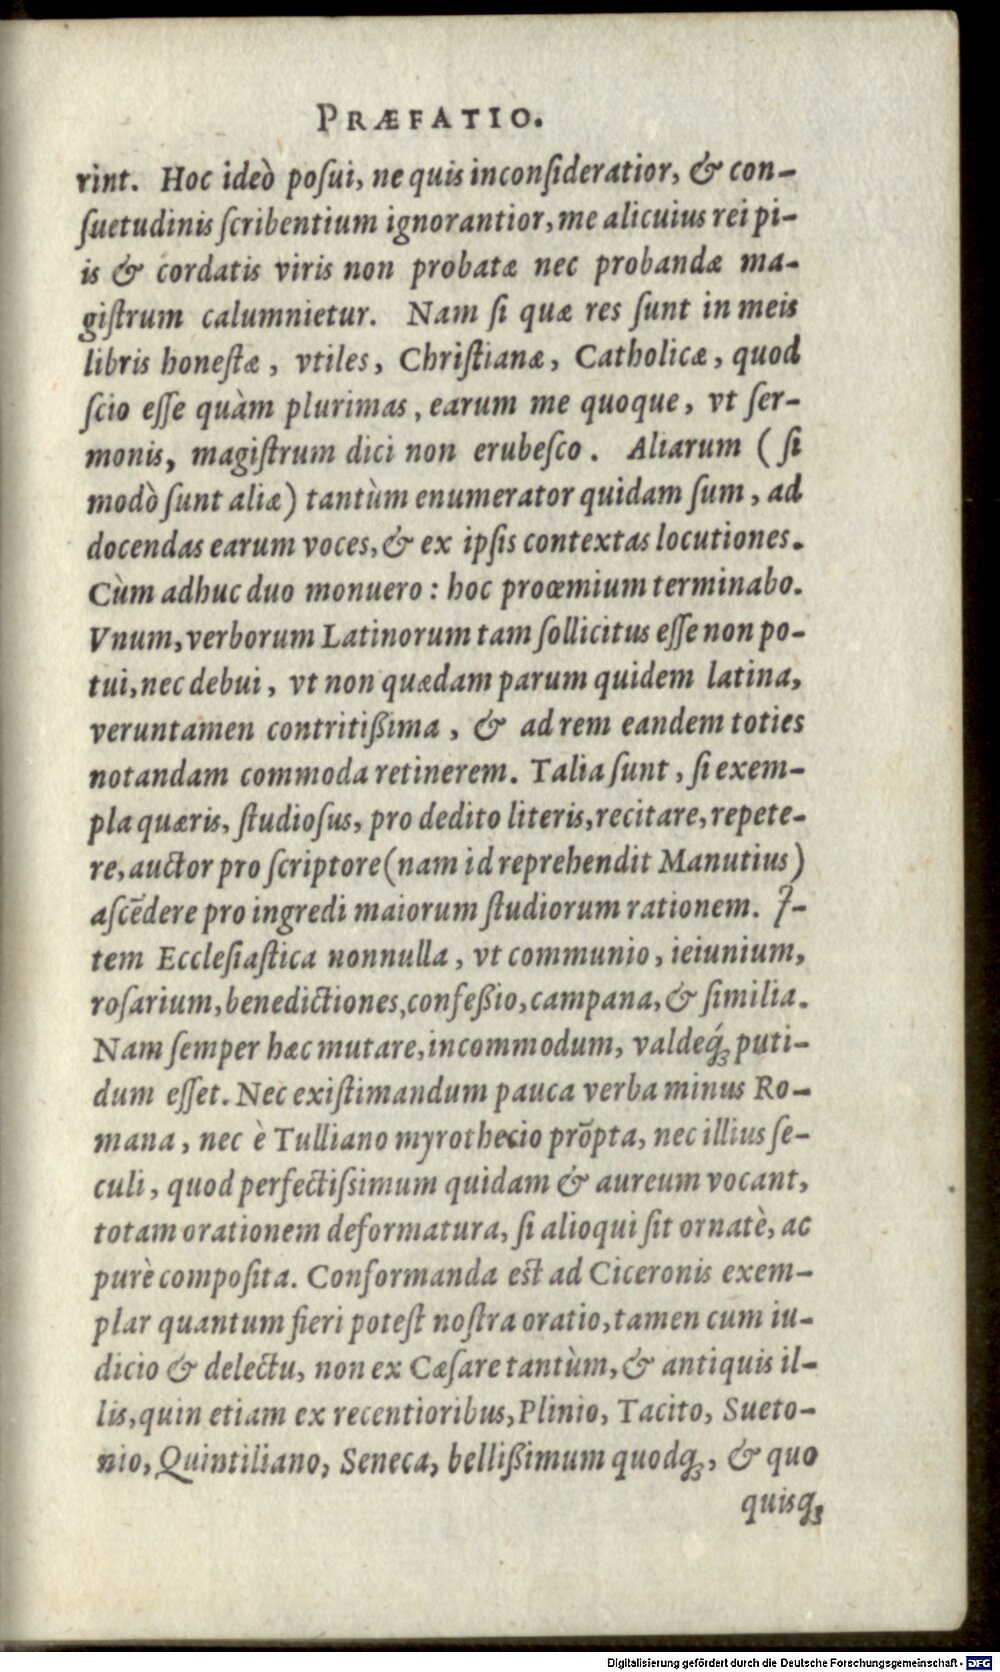 PRÆFATIO.
rint. Hoc ideò poſui, ne quis inconſideratior, & con-
ſuetudinis ſcribentium ignorantior, me alicuius rei pi-
is & cordatis viris non probatæ nec probandæ ma-
giſtrum calumnietur. Nam ſi quæ res ſunt in meis
libris honeſtæ, vtiles, Chriſtianæ, Catholicæ, quod
ſcio eſſe quàm plurimas, earum me quoque, vt ſer-
monis, magiſtrum dici non erubeſco. Aliarum (ſi
modò ſunt aliæ) tantùm enumerator quidam ſum, ad
docendas earum voces, & ex ipſis contextas locutiones.
Cùm adhuc duo monuero: hoc proœmium terminabo.
Vnum, verborum Latinorum tam ſollicitus eſſe non po-
tui, nec debui, vt non quædam parum quidem latina,
veruntamen contritißima, & ad rem eandem toties
notandam commoda retinerem. Talia ſunt, ſi exem-
pla quæris, ſtudioſus, pro dedito literis, recitare, repete-
re, auctor pro ſcriptore (nam id reprehendit Manutius)
aſcēdere pro ingredi maiorum ſtudiorum rationem. I-
tem Eccleſiaſtica nonnulla, vt communio, ieiunium,
roſarium, benedictiones, confeßio, campana, & ſimilia.
Nam ſemper hæc mutare, incommodum, valdeq́ꝫ puti-
dum eſſet. Nec exiſtimandum pauca verba minus Ro-
mana, nec è Tulliano myrothecio prōpta, nec illius ſe-
culi, quod perfectiſsimum quidam & aureum vocant,
totam orationem deformatura, ſi alioqui ſit ornatè, ac
purè compoſita. Conformanda eſt ad Ciceronis exem-
plar quantum fieri poteſt noſtra oratio, tamen cum iu-
dicio & delectu, non ex Cæſare tantùm, & antiquis il-
lis, quin etiam ex recentioribus, Plinio, Tacito, Sueto-
nio, Quintiliano, Seneca, bellißimum quodqꝫ, & quo
quisqꝫ
Digitalisierung gefördert durch die Deutsche Forschungsgemeinschaft - DFG